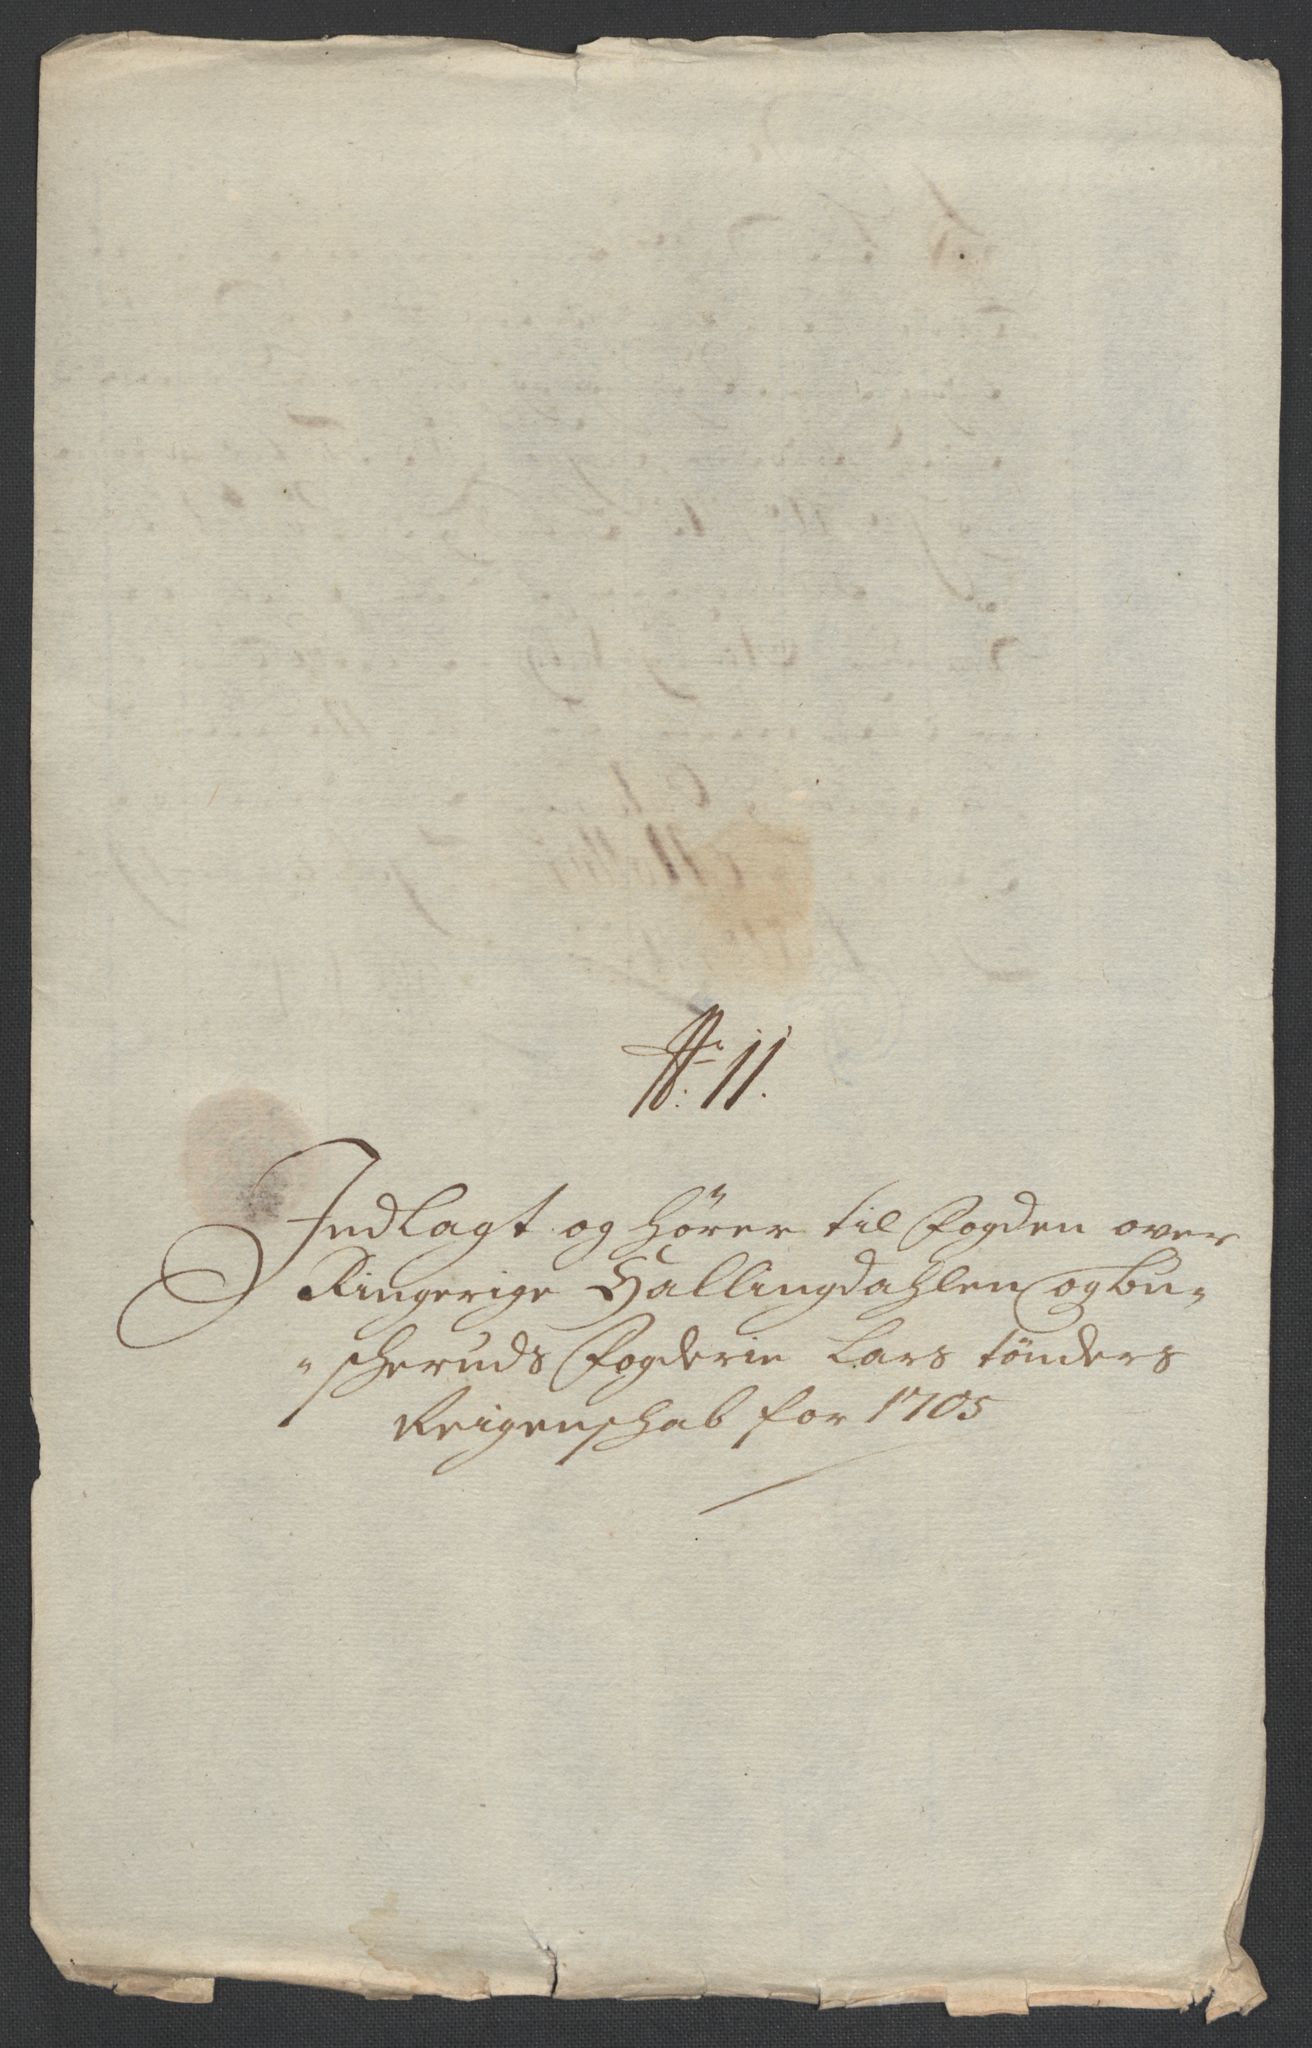 No: 11.
Indlagt og hører til Fogden over
Ringerige Hallingdahlen og bu-
-scheruds Fogderie Lars tönders
Reigenschab for 1705